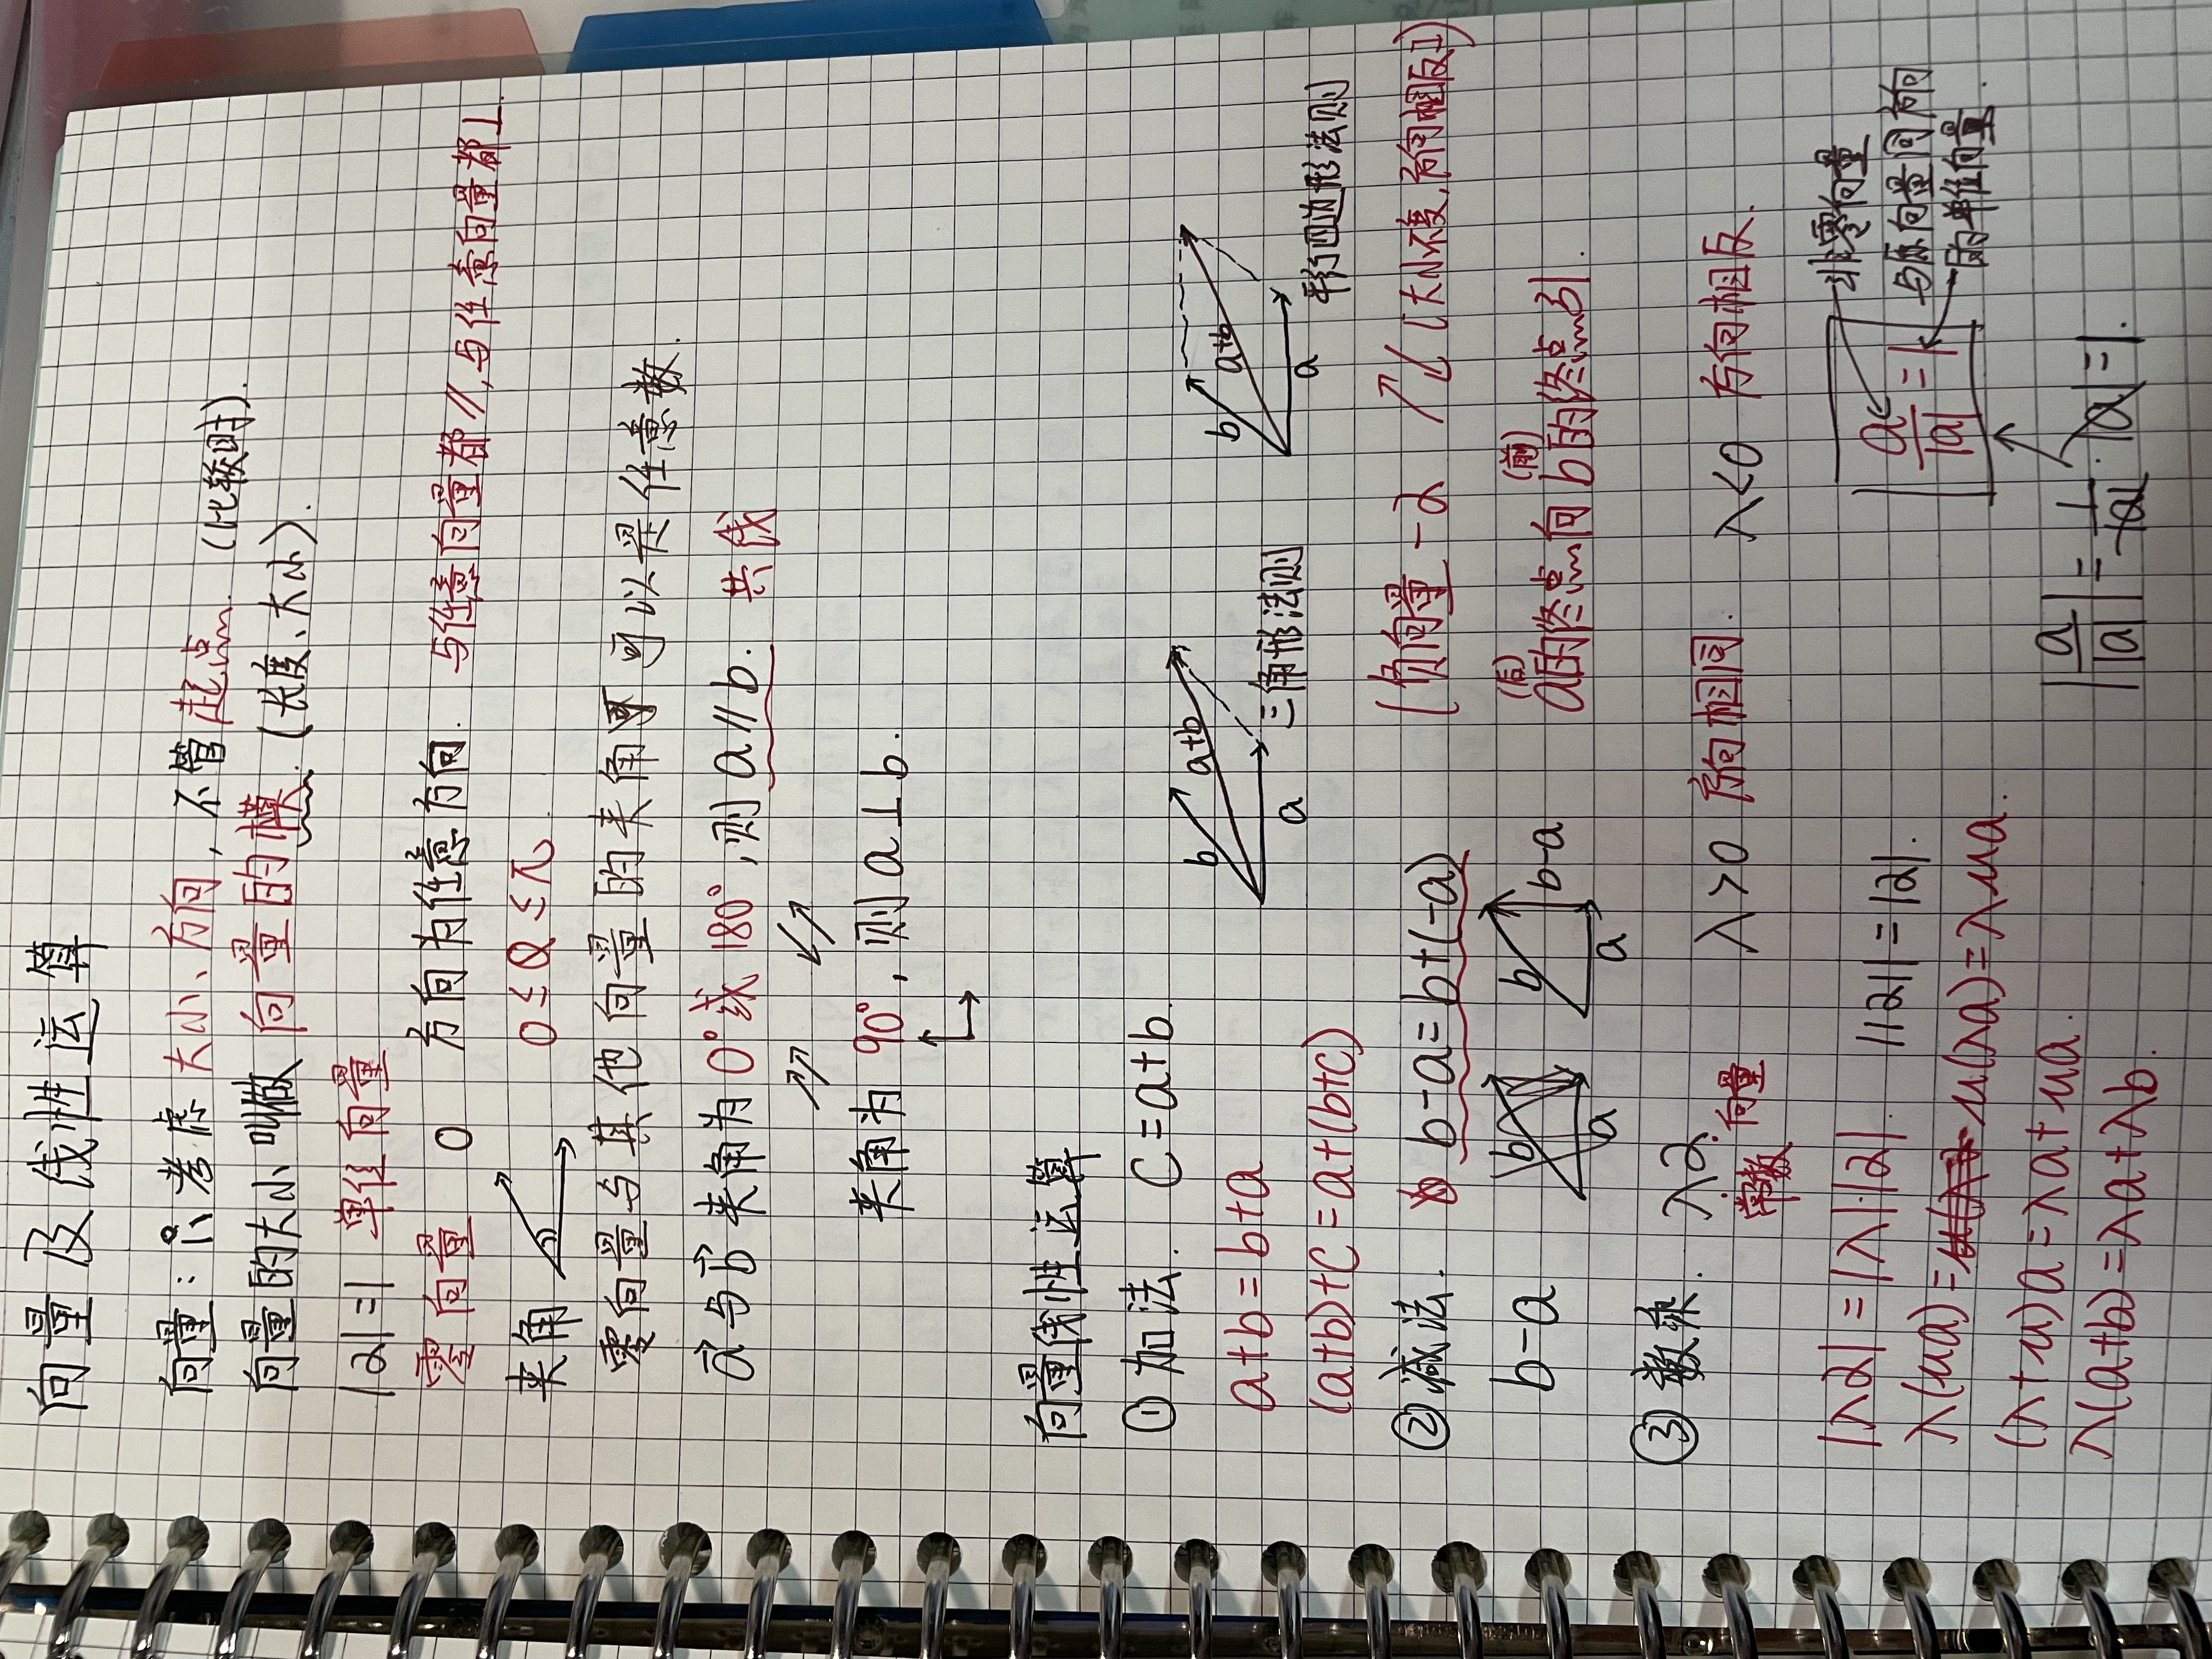 向量及线性运算
向量：只考虑大小、方向，不管起点.（比较时）.
向量的大小叫做 向量的模.（长度、大小）.
|a|=1 单位向量
零向量 0 方向为任意方向. 与任意向量都//,与任意向量都⊥.
夹角 0≤θ≤π.
零向量与其他向量的夹角可以是任意数.
a与b夹角为0°或180°,则a//b. 共线
夹角为90°,则a⊥b.
向量线性运算
①加法. c=a+b.
b a+b a 三角形法则
b a+b a 平行四边形法则
a+b=b+a
(a+b)+c=a+(b+c)
②减法. b-a=b+(-a) [负向量-a (大小不变,方向相反)]
b-a b a b a b-a (后)a的终点向(前)b的终点的.
③数乘. λa. 常数 向量 λ>0 方向相同. λ<0 方向相反.
|λa|=|λ|·|a|. ||a||=|a|.
|a/|a||=1 非零向量
与原向量同方向
的单位向量.
λ(ua)=u(λa)=λua.
(λ+u)a=λa+ua.
|a/|a||=1/|a|·|a|=1.
λ(a+b)=λa+λb.